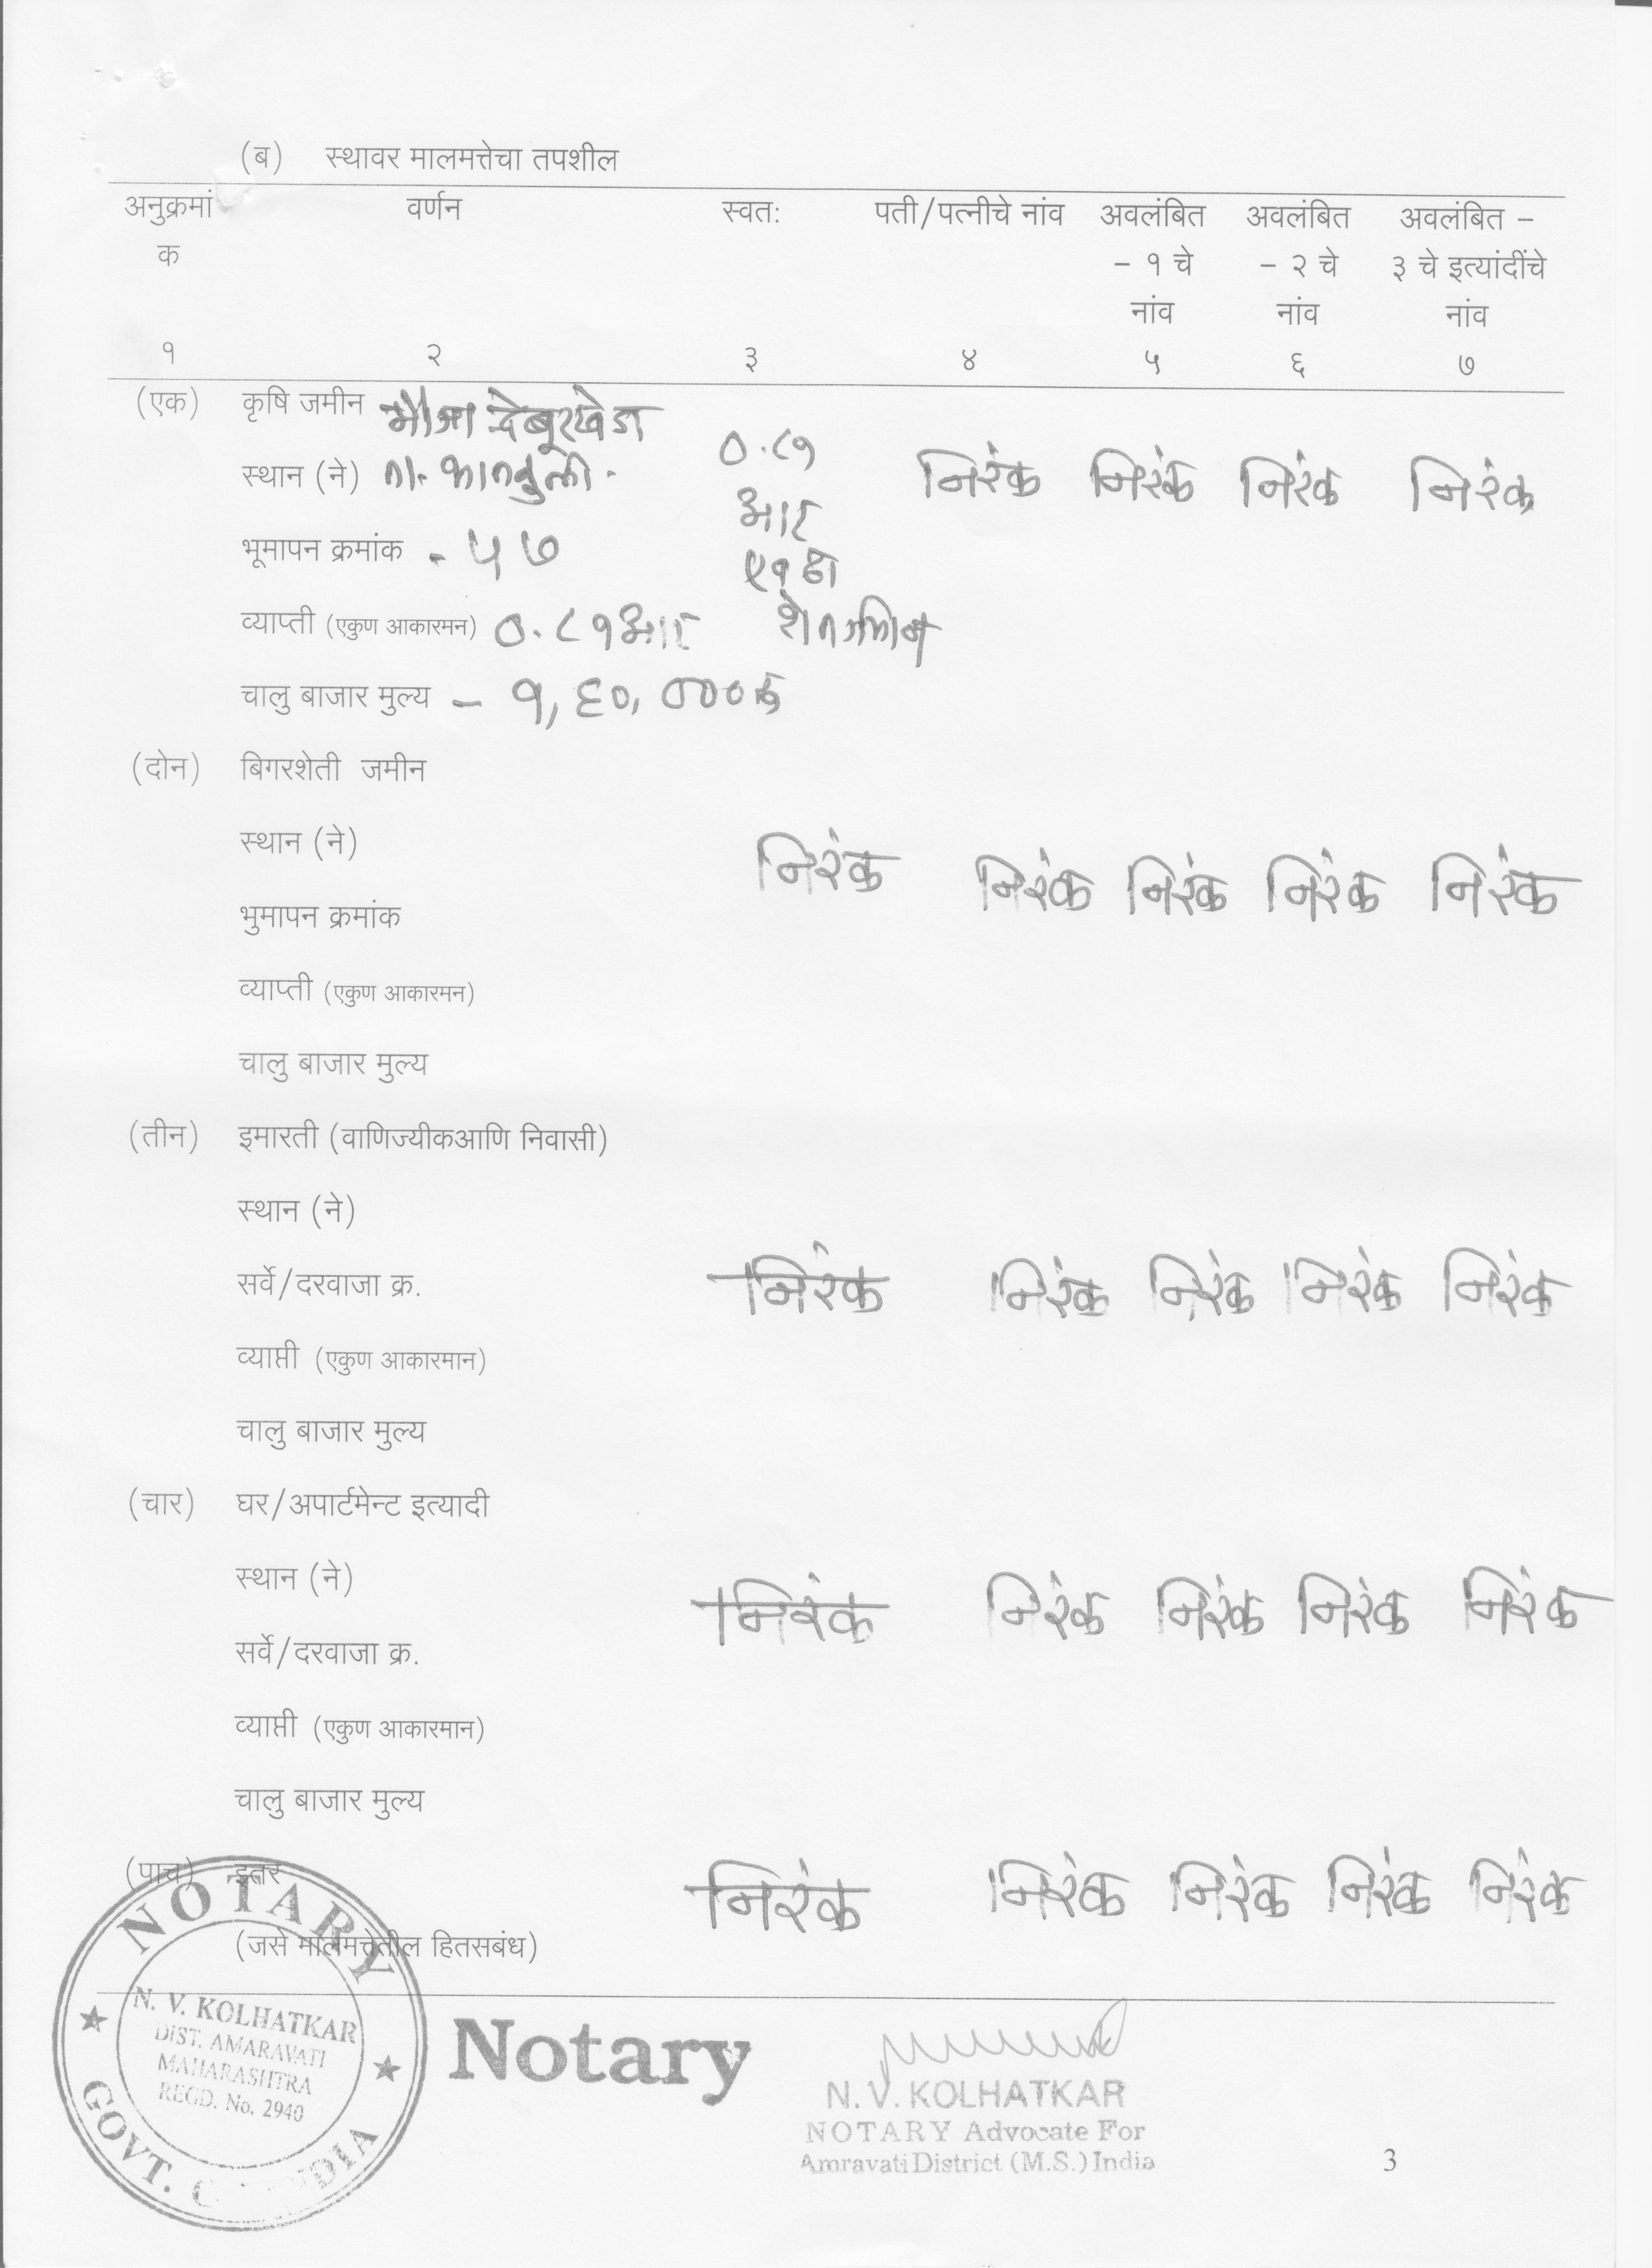 (ब) स्थावर मालमत्तेचा तपशील
अनुक्रमां वर्णन स्वत: पती/पत्नीचे नांव अवलंबित अवलंबित अवलंबित –
क – १ चे – २ चे ३ चे इत्यांदींचे
नांव नांव नांव
१ २ ३ ४ ५ ६ ७
(एक) कृषि जमीन मौजा
स्थान (ने) ता. ०.८१ निरंक निरंक निरंक निरंक
आर
भूमापन क्रमांक - ५७
व्याप्ती (एकुण आकारमन) ०.८१ आर
चालु बाजार मुल्य – १,६०,०००
(दोन) बिगरशेती जमीन
स्थान (ने)
निरंक निरंक निरंक निरंक निरंक
भुमापन क्रमांक
व्याप्ती (एकुण आकारमन)
चालु बाजार मुल्य
(तीन) इमारती (वाणिज्यीकआणि निवासी)
स्थान (ने)
सर्वे/दरवाजा क्र. निरंक निरंक निरंक निरंक निरंक
व्याप्ती (एकुण आकारमान)
चालु बाजार मुल्य
(चार) घर/अपार्टमेन्ट इत्यादी
स्थान (ने)
निरंक निरंक निरंक निरंक निरंक
सर्वे/दरवाजा क्र.
व्याप्ती (एकुण आकारमान)
चालु बाजार मुल्य
(पाच) इतर निरंक निरंक निरंक निरंक निरंक
(जसे मालमत्तेतील हितसबंध)
NOTARY
N. V. KOLHATKAR
DIST. AMARAVATI
MAHARASHTRA
REGD. No. 2940
GOVT.
Notary
N. V. KOLHATKAR
NOTARY Advocate For
Amravati District (M.S.) India
3